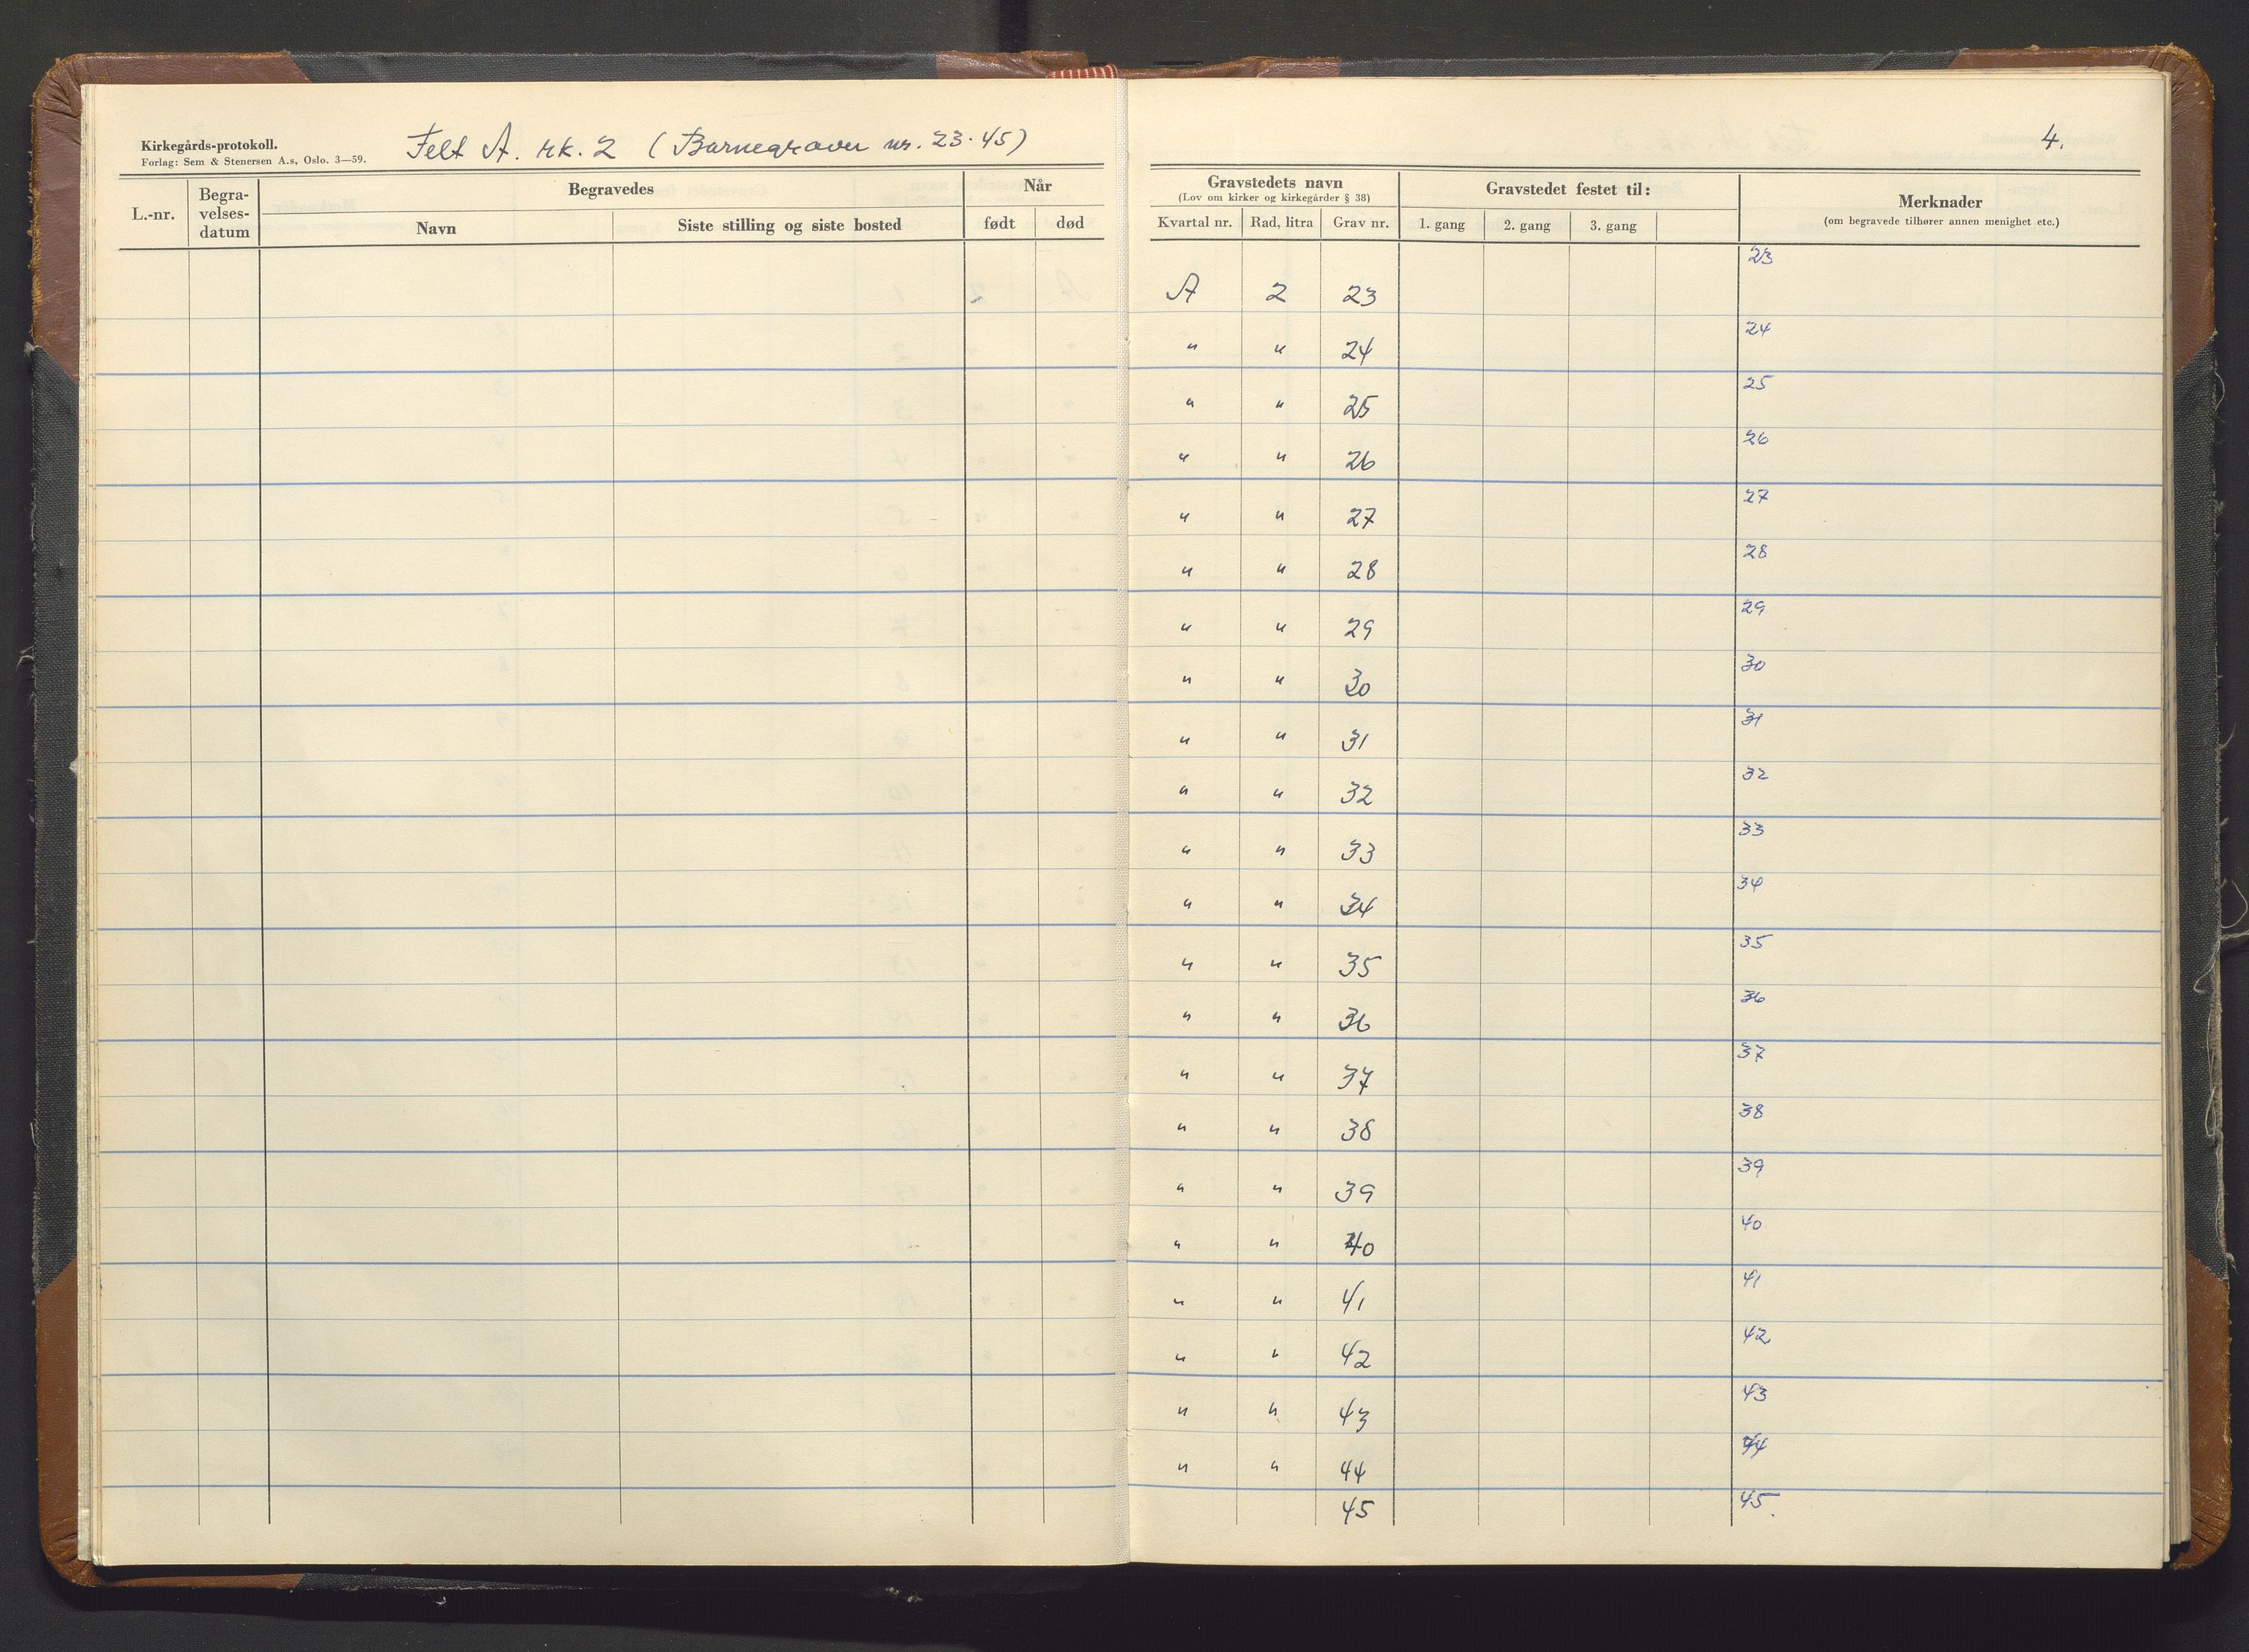 Kirkegårds-protokoll.
Forlag: Sem & Stenersen A.s, Oslo. 3—59.
Felt A. rk. 2 (Barnegraver nr. 23-45)
4.
L.-nr.
Begra-
velses-
datum
Begravedes
Navn
Siste stilling og siste bosted
Når
født
død
Gravstedets navn
(Lov om kirker og kirkegårder § 38)
Kvartal nr.
Rad, litra
Grav nr.
Gravstedet festet til:
1. gang
2. gang
3. gang
Merknader
(om begravede tilhører annen menighet etc.)
A 2 23 23
" " 24 24
" " 25 25
" " 26 26
" " 27 27
" " 28 28
" " 29 29
" " 30 30
" " 31 31
" " 32 32
" " 33 33
" " 34 34
" " 35 35
" " 36 36
" " 37 37
" " 38 38
" " 39 39
" " 40 40
" " 41 41
" " 42 42
" " 43 43
" " 44 44
45 45.